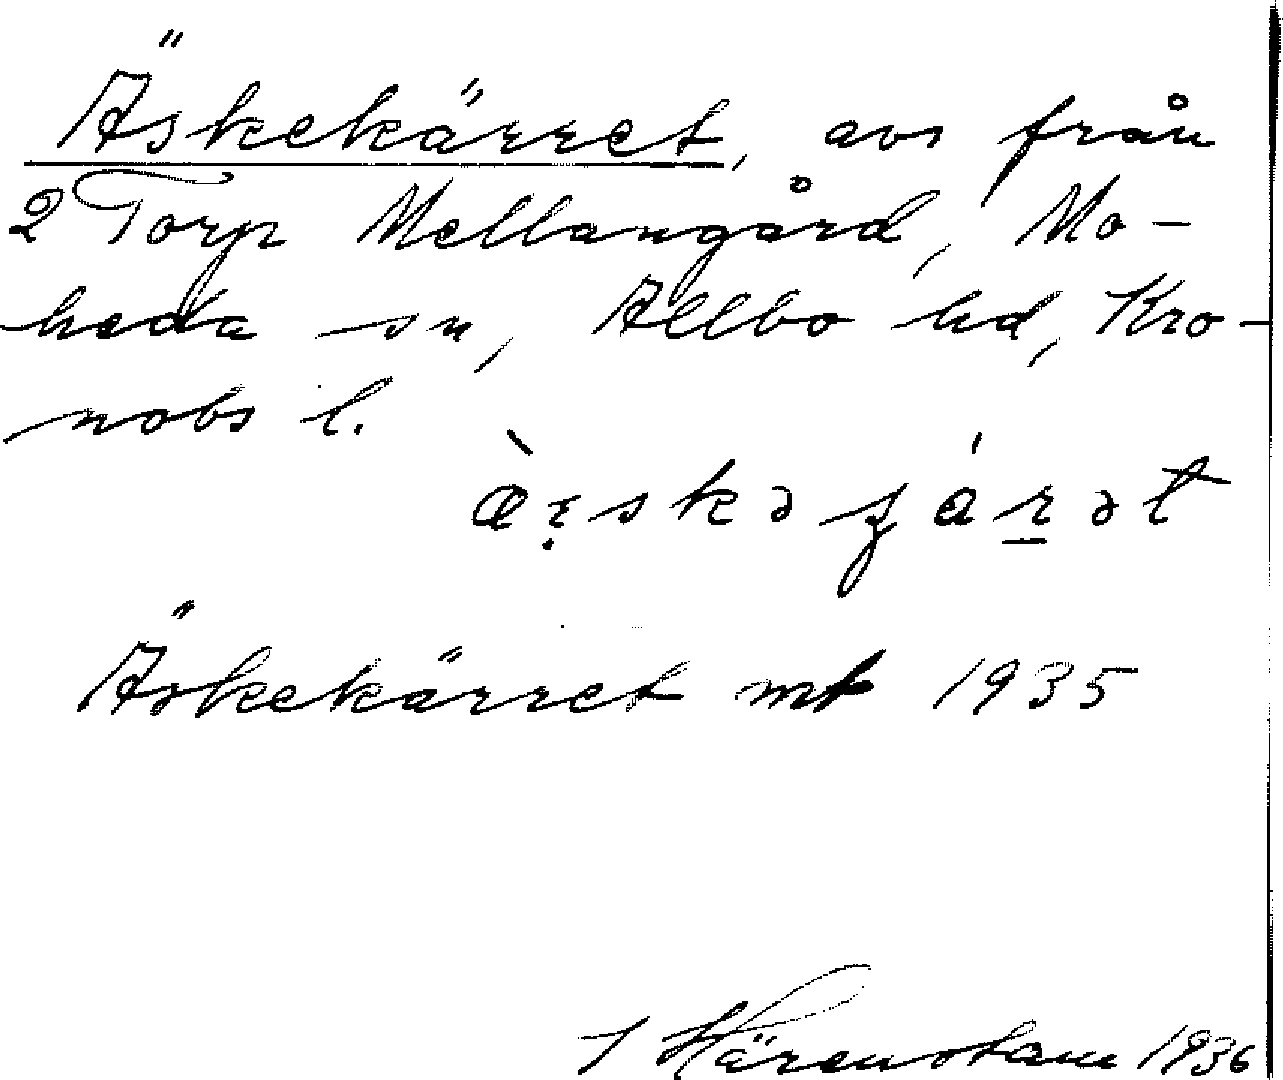 Äskekärret, avs från
2 Torp Mellangård, Mo-
heda sn, Allbo hd, Kro-
nobs l.
Äskekärret mt 1935
J Härenstam 1936